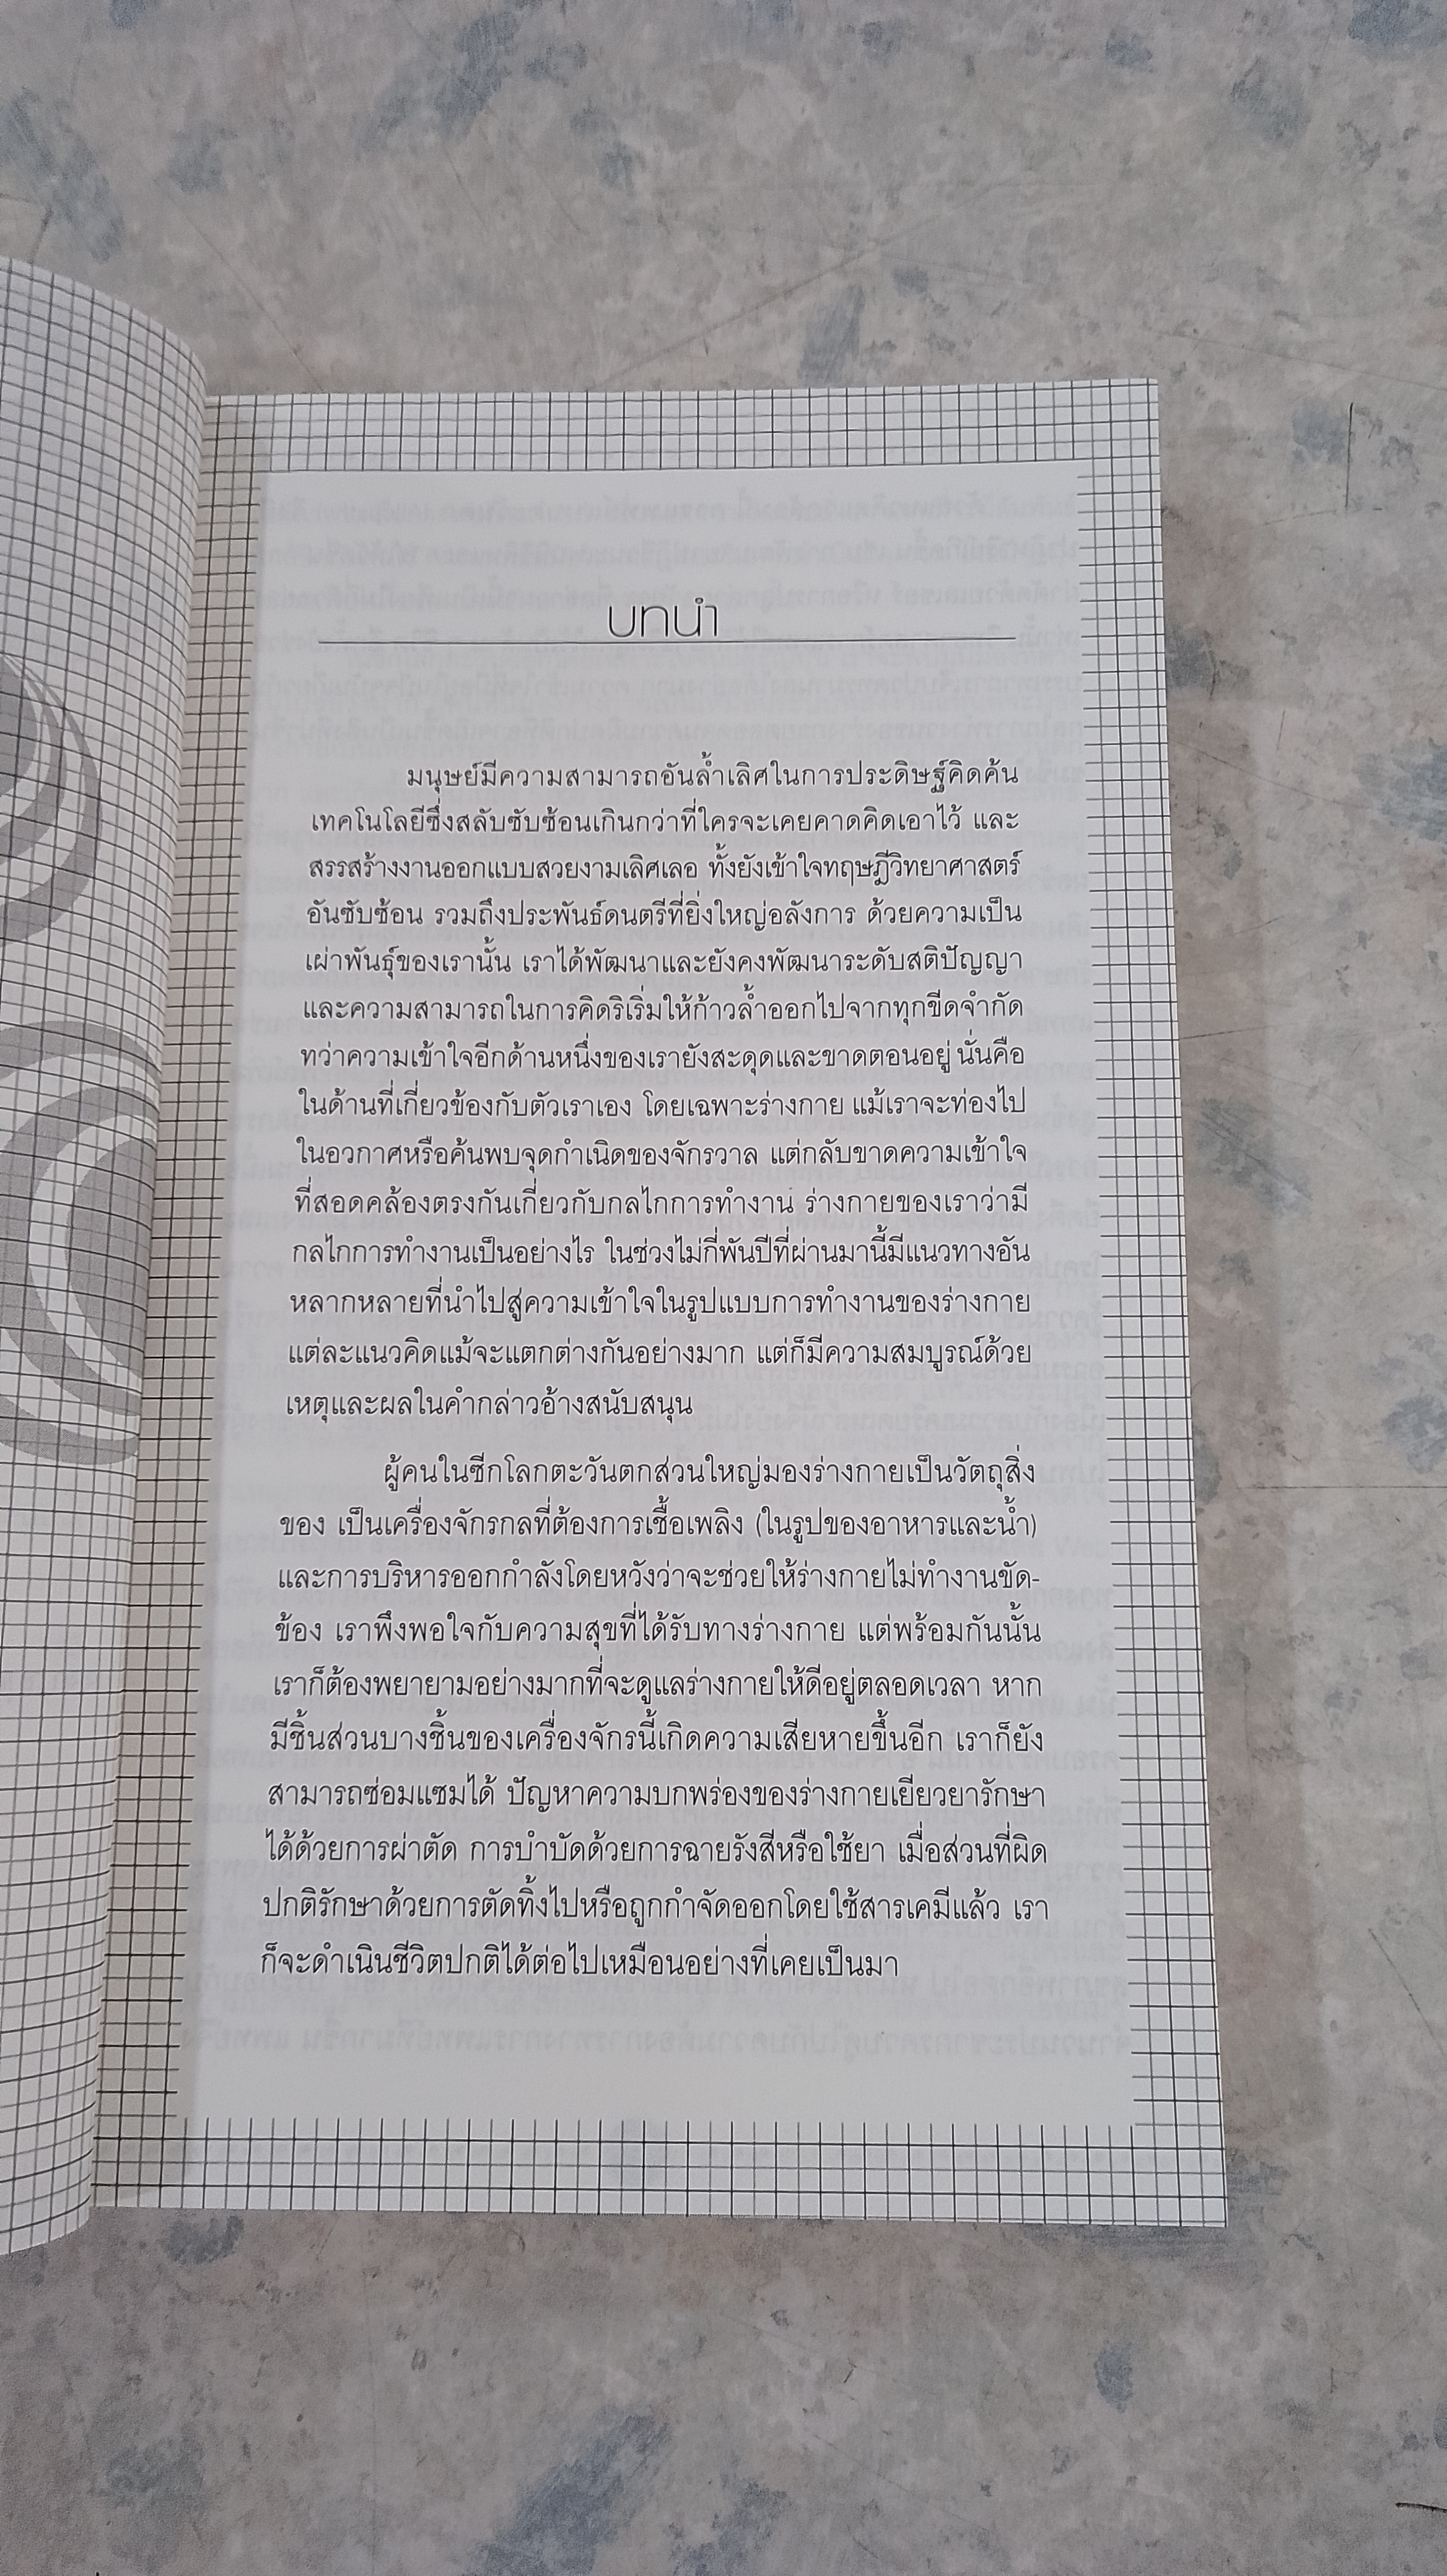 บทนำ
มนุษย์มีความสามารถอันล้ำเลิศในการประดิษฐ์คิดค้น
เทคโนโลยีซึ่งสลับซับซ้อนเกินกว่าที่ใครจะเคยคาดคิดเอาไว้ และ
สรรสร้างงานออกแบบสวยงามเลิศเลอ ทั้งยังเข้าใจทฤษฎีวิทยาศาสตร์
อันซับซ้อน รวมถึงประพันธ์ดนตรีที่ยิ่งใหญ่อลังการ ด้วยความเป็น
เผ่าพันธุ์ของเรานั้น เราได้พัฒนาและยังคงพัฒนาระดับสติปัญญา
และความสามารถในการคิดริเริ่มให้ก้าวล้ำออกไปจากทุกขีดจำกัด
ทว่าความเข้าใจอีกด้านหนึ่งของเรายังสะดุดและขาดตอนอยู่ นั่นคือ
ในด้านที่เกี่ยวข้องกับตัวเราเอง โดยเฉพาะร่างกาย แม้เราจะท่องไป
ในอวกาศหรือค้นพบจุดกำเนิดของจักรวาล แต่กลับขาดความเข้าใจ
ที่สอดคล้องตรงกันเกี่ยวกับกลไกการทำงาน ร่างกายของเราว่ามี
กลไกการทำงานเป็นอย่างไร ในช่วงไม่กี่พันปีที่ผ่านมานี้มีแนวทางอัน
หลากหลายที่นำไปสู่ความเข้าใจในรูปแบบการทำงานของร่างกาย
แต่ละแนวคิดแม้จะแตกต่างกันอย่างมาก แต่ก็มีความสมบูรณ์ด้วย
เหตุและผลในคำกล่าวอ้างสนับสนุน
ผู้คนในซีกโลกตะวันตกส่วนใหญ่มองร่างกายเป็นวัตถุสิ่ง
ของ เป็นเครื่องจักรกลที่ต้องการเชื้อเพลิง (ในรูปของอาหารและน้ำ)
และการบริหารออกกำลังโดยหวังว่าจะช่วยให้ร่างกายไม่ทำงานขัด-
ข้อง เราพึงพอใจกับความสุขที่ได้รับทางร่างกาย แต่พร้อมกันนั้น
เราก็ต้องพยายามอย่างมากที่จะดูแลร่างกายให้ดีอยู่ตลอดเวลา หาก
มีชิ้นส่วนบางชิ้นของเครื่องจักรนี้เกิดความเสียหายขึ้นอีก เราก็ยัง
สามารถซ่อมแซมได้ ปัญหาความบกพร่องของร่างกายเยียวยารักษา
ได้ด้วยการผ่าตัด การบำบัดด้วยการฉายรังสีหรือใช้ยา เมื่อส่วนที่ผิด
ปกติรักษาด้วยการตัดทิ้งไปหรือถูกกำจัดออกโดยใช้สารเคมีแล้ว เรา
ก็จะดำเนินชีวิตปกติได้ต่อไปเหมือนอย่างที่เคยเป็นมา